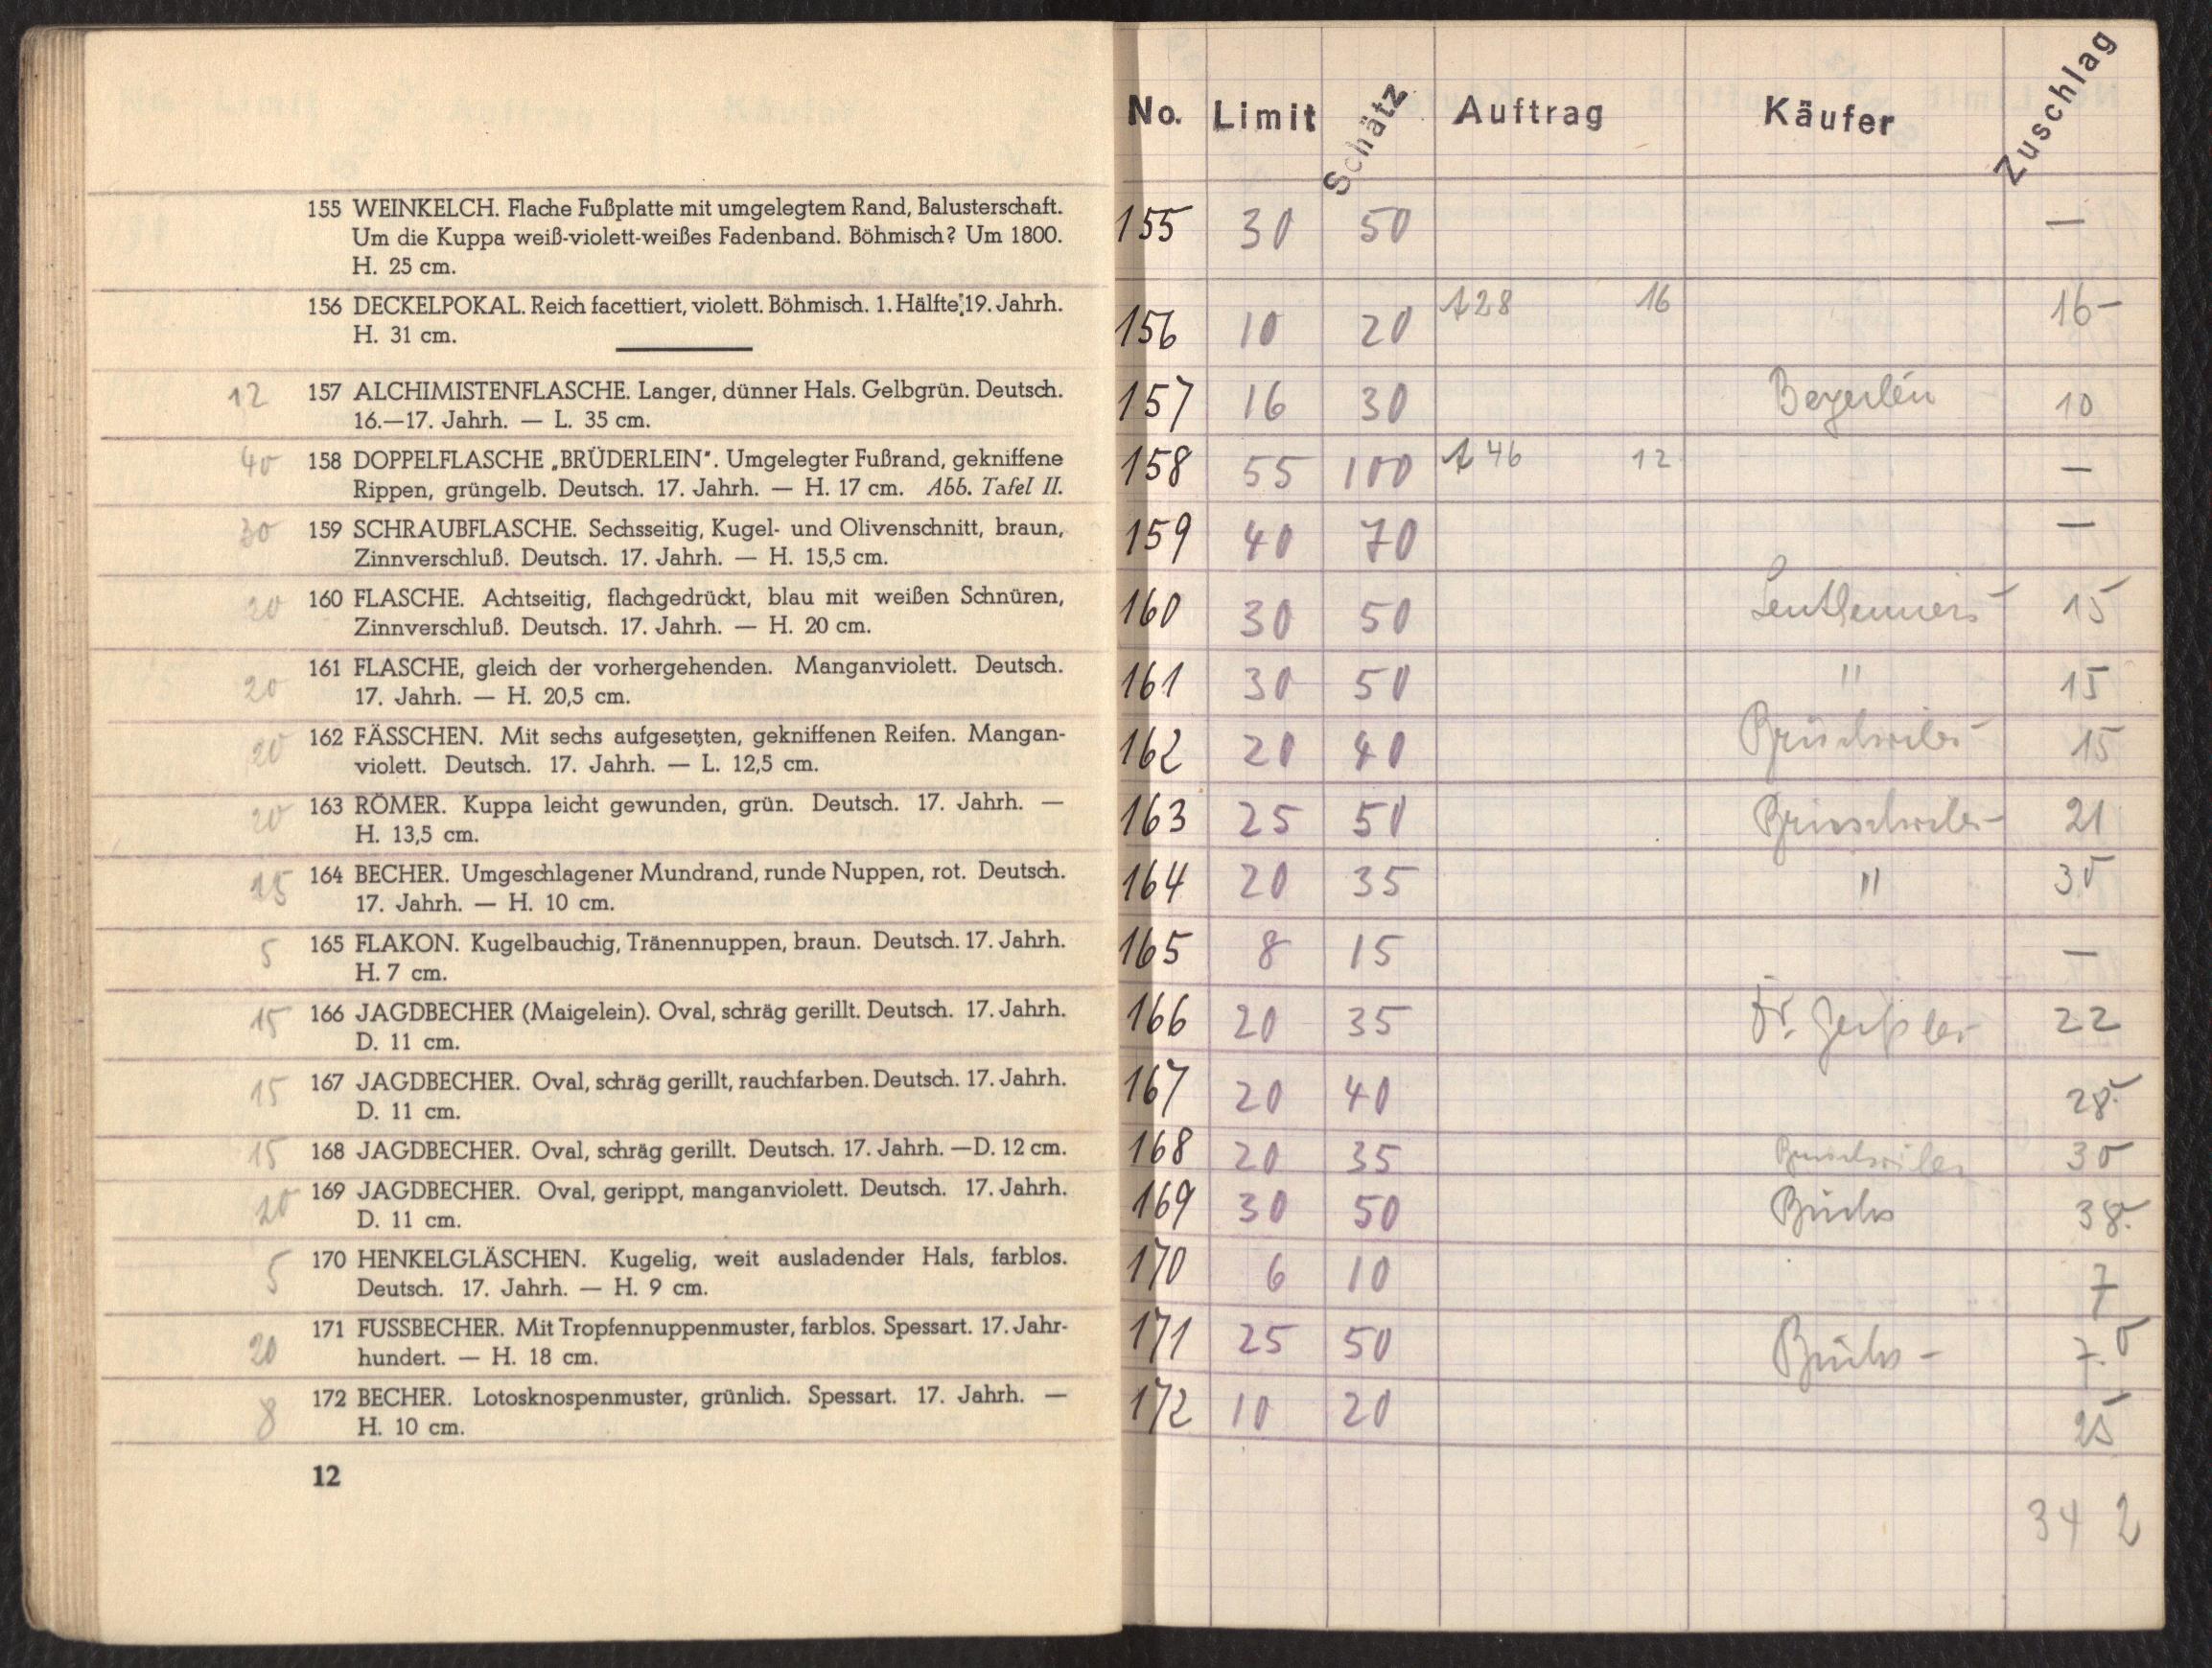 155 WEINKELCH. Flache Fußplatte mit umgelegtem Rand, Balusterschaft.
Um die Kuppa weiß-violett-weißes Fadenband. Böhmisch? Um 1800.
H. 25 cm.
156 DECKELPOKAL. Reich facettiert, violett. Böhmisch. 1. Hälfte 19. Jahrh.
H. 31 cm.
12 157 ALCHIMISTENFLASCHE. Langer, dünner Hals. Gelbgrün. Deutsch.
16.—17. Jahrh. — L. 35 cm.
40 158 DOPPELFLASCHE „BRÜDERLEIN". Umgelegter Fußrand, gekniffene
Rippen, grüngelb. Deutsch. 17. Jahrh. — H. 17 cm. Abb. Tafel II.
30 159 SCHRAUBFLASCHE. Sechsseitig, Kugel- und Olivenschnitt, braun,
Zinnverschluß. Deutsch. 17. Jahrh. — H. 15,5 cm.
20 160 FLASCHE. Achtseitig, flachgedrückt, blau mit weißen Schnüren,
Zinnverschluß. Deutsch. 17. Jahrh. — H. 20 cm.
20 161 FLASCHE, gleich der vorhergehenden. Manganviolett. Deutsch.
17. Jahrh. — H. 20,5 cm.
20 162 FÄSSCHEN. Mit sechs aufgesetzten, gekniffenen Reifen. Mangan-
violett. Deutsch. 17. Jahrh. — L. 12,5 cm.
20 163 RÖMER. Kuppa leicht gewunden, grün. Deutsch. 17. Jahrh. —
H. 13,5 cm.
15 164 BECHER. Umgeschlagener Mundrand, runde Nuppen, rot. Deutsch.
17. Jahrh. — H. 10 cm.
5 165 FLAKON. Kugelbauchig, Tränennuppen, braun. Deutsch. 17. Jahrh.
H. 7 cm.
15 166 JAGDBECHER (Maigelein). Oval, schräg gerillt. Deutsch. 17. Jahrh.
D. 11 cm.
15 167 JAGDBECHER. Oval, schräg gerillt, rauchfarben. Deutsch. 17. Jahrh.
D. 11 cm.
15 168 JAGDBECHER. Oval, schräg gerillt. Deutsch. 17. Jahrh. —D. 12 cm.
20 169 JAGDBECHER. Oval, gerippt, manganviolett. Deutsch. 17. Jahrh.
D. 11 cm.
5 170 HENKELGLÄSCHEN. Kugelig, weit ausladender Hals, farblos.
Deutsch. 17. Jahrh. — H. 9 cm.
20 171 FUSSBECHER. Mit Tropfennuppenmuster, farblos. Spessart. 17. Jahr-
hundert. — H. 18 cm.
8 172 BECHER. Lotosknospenmuster, grünlich. Spessart. 17. Jahrh. —
H. 10 cm.
12
No. Limit Schätz Auftrag Käufer Zuschlag
155 30 50 —
156 10 20 28 16 16—
157 16 30 10
158 55 100 46 12 —
159 40 70 —
160 30 50 15
161 30 50 " 15
162 20 40 15
163 25 50 21
164 20 35 " 30
165 8 15 —
166 20 35 22
167 20 40 28.-
168 20 35 30
169 30 50 38.-
170 6 10 7
171 25 50
172 10 20 25
34 2